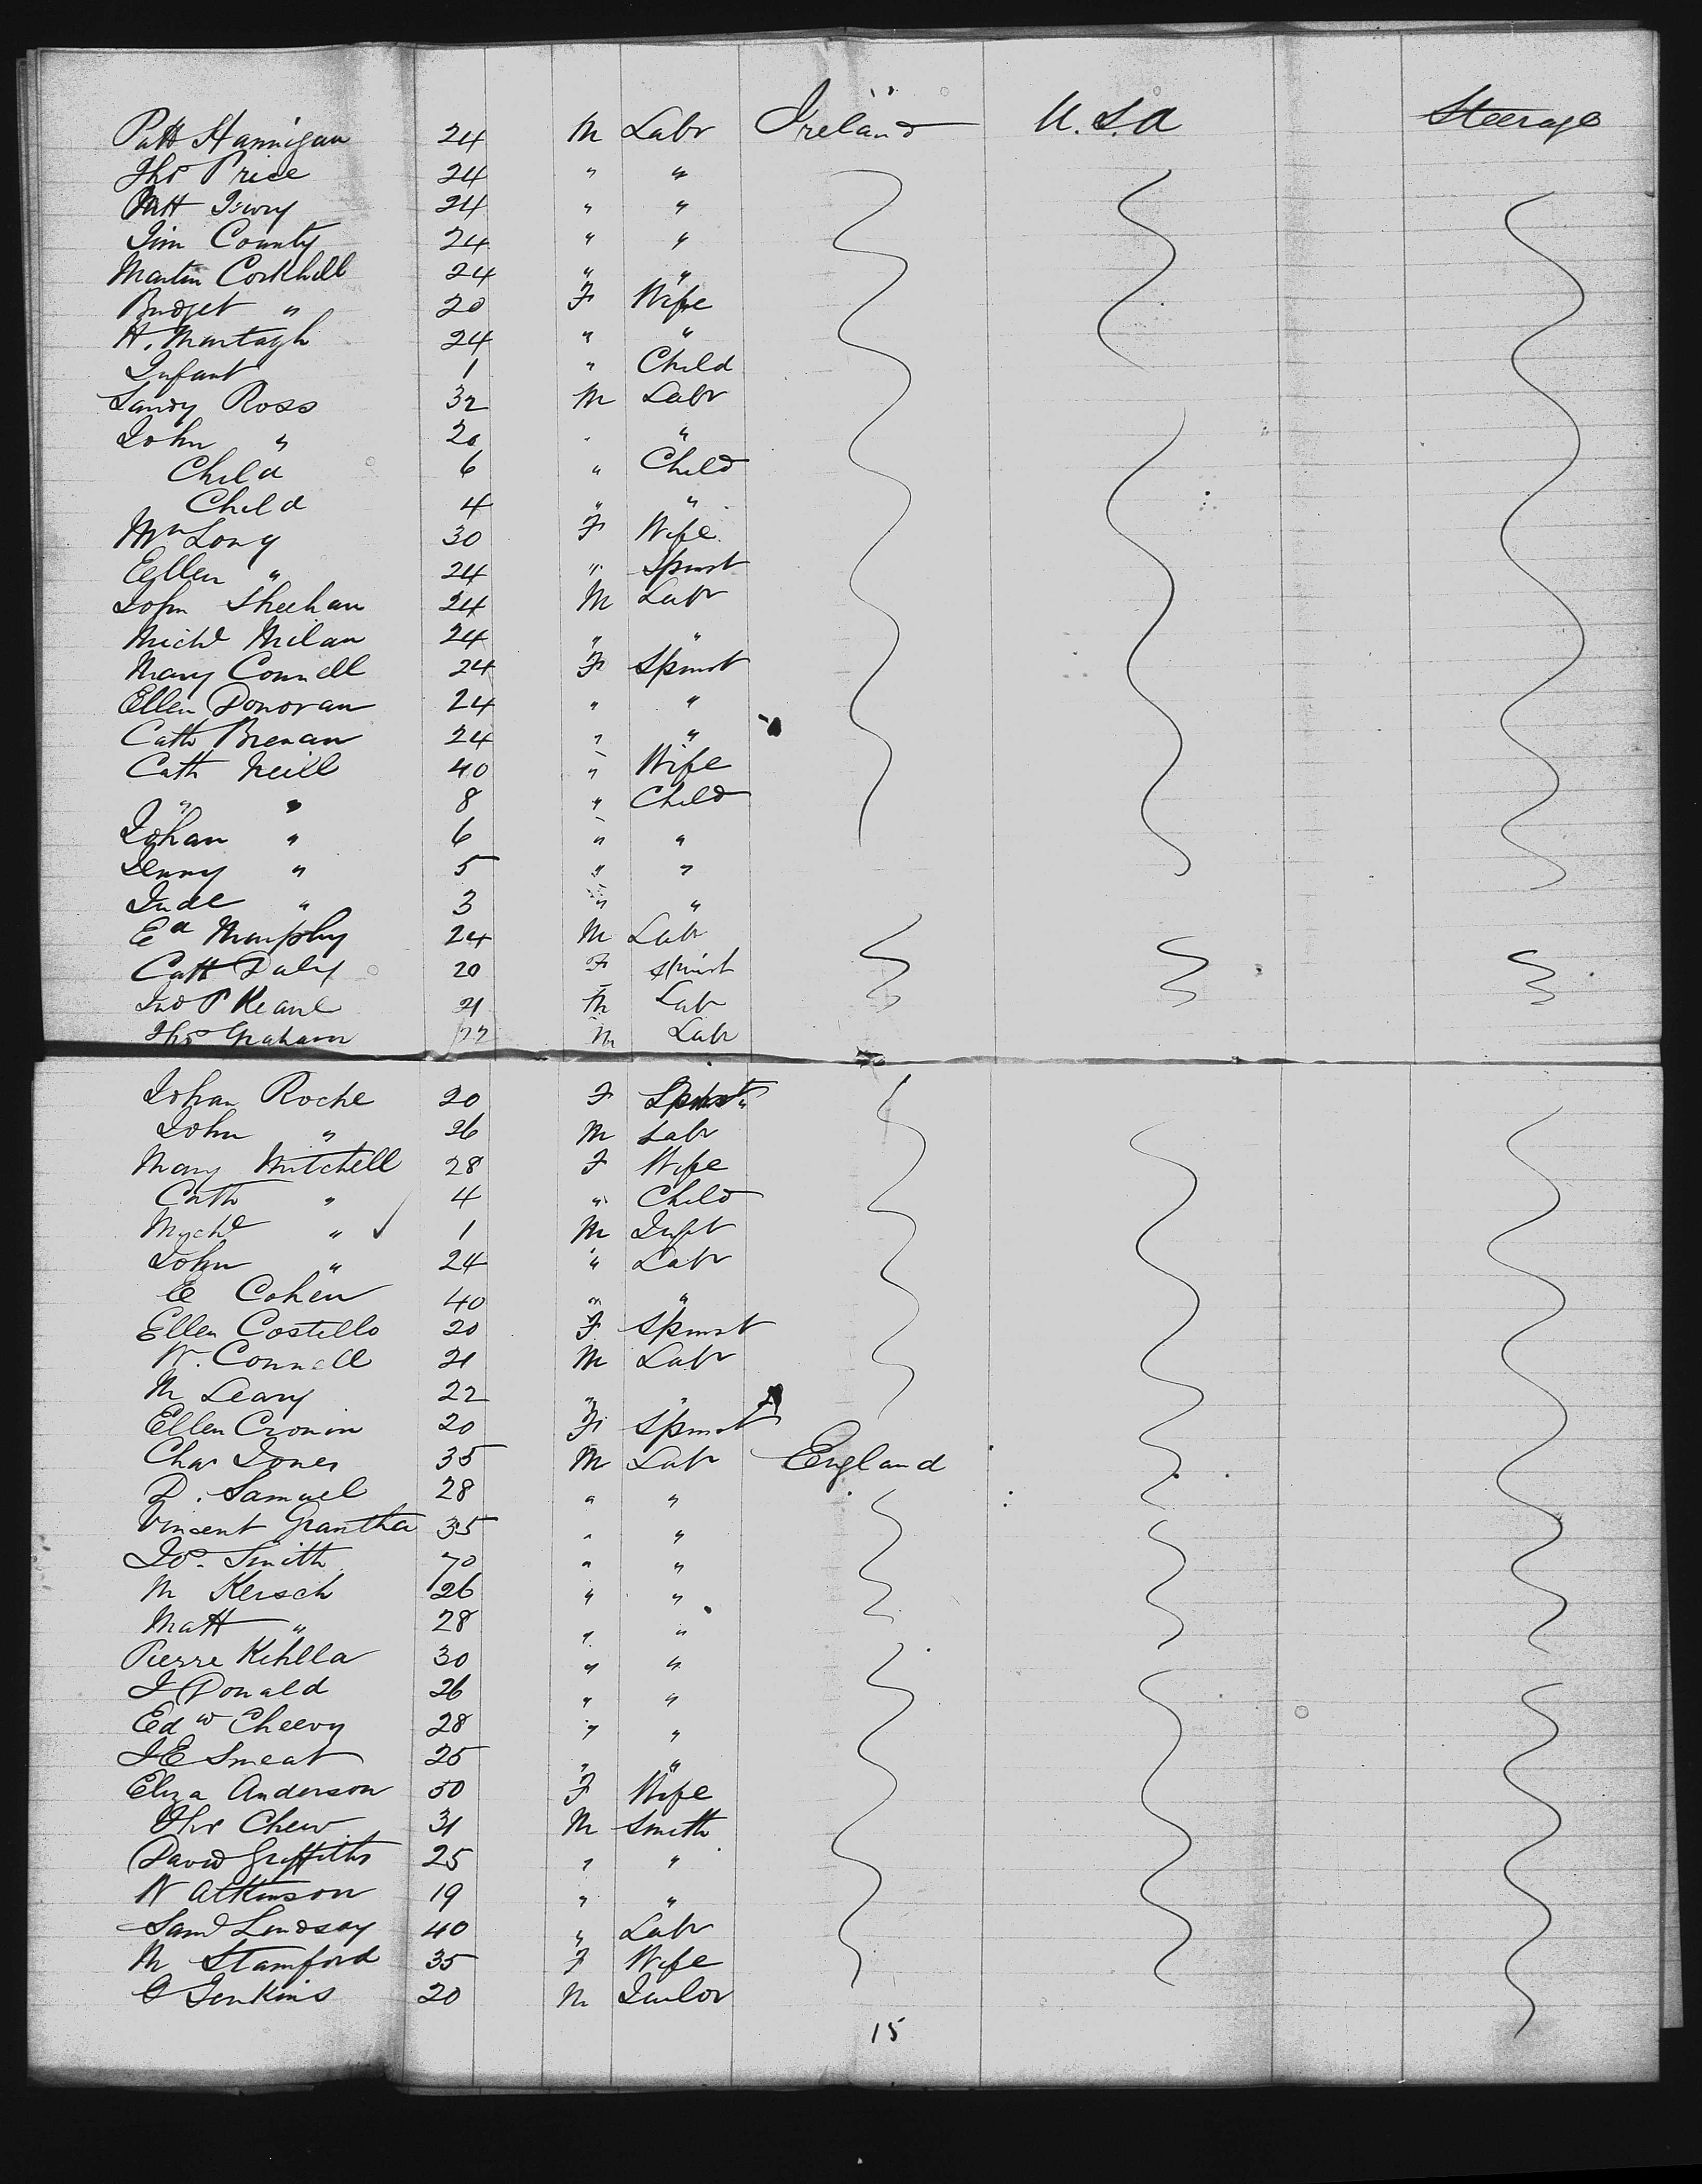 Patt Hannigan 24 M Labr Ireland U.S.A Steerage
Thos Price 24 " "
Patt 24 " "
Jim County 24 " "
Martin Corkhill 24 " "
Bridget " 20 F Wife
H. Murtagh 24 " "
Infant 1 " Child
Sandy Ross 32 M Labr
John " 20 " "
Child 6 " Child
Child 4 " "
Mrs Long 30 F Wife
Eyllen " 24 " Spinst
John Sheehan 24 M Labr
Michl Milan 24 " "
Mary Connell 24 F Spinst
Ellen Donovan 24 " "
Cath Brenan 24 " "
Cath Neill 40 " Wife
" " 8 " Child
Johan " 6 " "
Denny " 5 " "
" 3 " "
Ed Murphy 24 M Labr
Cath Daly 20 F Spinst
Jno P Keane 21 M Labr
Thos Graham 22 M Labr
Johan Roche 20 F Spinst
John " 26 M Labr
Mary Mitchell 28 F Wife
Cath " 4 " Child
Mychl " ✓ 1 M Inft
John " 24 " Labr
E Cohen 40 " "
Ellen Costello 20 F Spinst
W. Connell 21 M Labr
M Leary 22 " "
Ellen Cronin 20 F Spinst
Chas Jones 35 M Labr England
D. Samuel 28 " "
Vincent Grantha 35 " "
Jos. Smith 70 " "
M Kersch 26 " "
Matt " 28 " "
Pierre Kehlla 30 " "
J Donald 26 " "
Edw Cheevy 28 " "
J E Smeat 25 " "
Eliza Anderson 50 F Wife
Thos Chew 31 M Smith
David Griffiths 25 " "
W Atkinson 19 " "
Saml Lindsay 40 " Labr
M Stamford 35 F Wife
G Jenkins 20 M
15